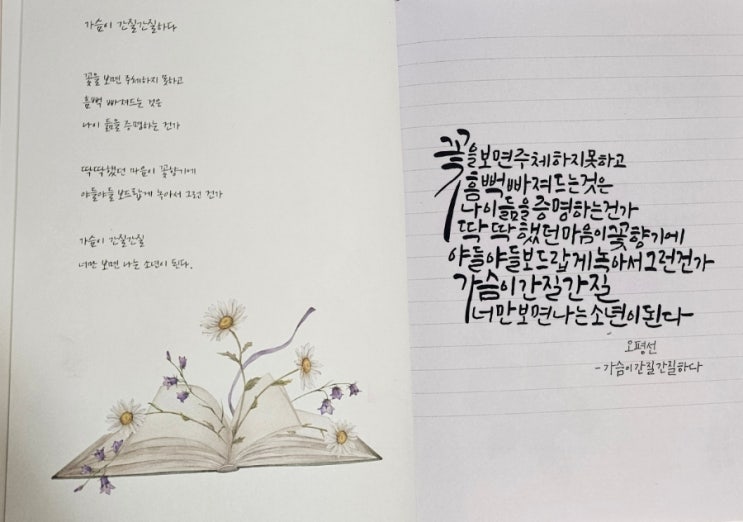 가슴이 간질간질하다
꽃을 보면 주체하지 못하고
흠뻑 빠져드는 것은
나이 듦을 증명하는 건가
딱딱했던 마음이 꽃향기에
야들야들 보드랍게 녹아서 그런 건가
가슴이 간질간질
너만 보면 나는 소년이 된다.
꽃을보면주체하지못하고
흠뻑빠져드는것은
나이듦을증명하는건가
딱딱했던마음이꽃향기에
야들야들보드랍게녹아서그런건가
가슴이간질간질
너만보면나는소년이된다
오평선
-가슴이간질간질하다